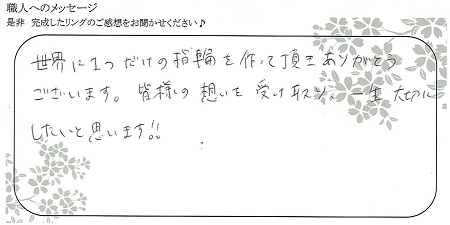 職人へのメッセージ
是非 完成したリングのご感想をお聞かせください♪
世界に1つだけの指輪を作って頂きありがとう
ございます。皆様の想いを受け取り、一生大切に
したいと思います!!